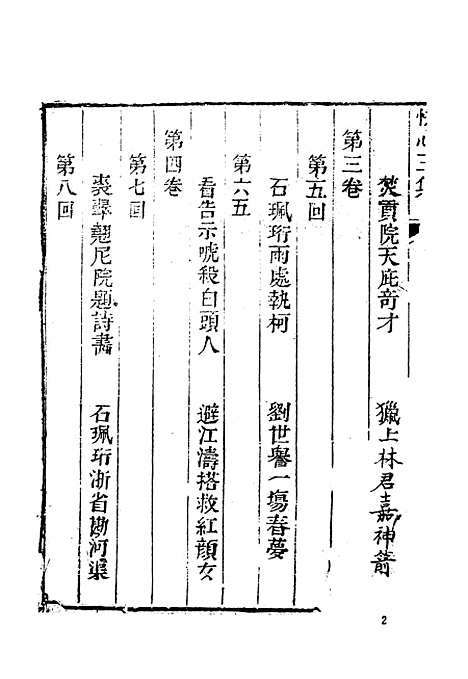 快心三集
焚貢院天庇奇才　獵上林君嘉神箭
第三卷
第五回
石珮珩兩處執柯　劉世譽一塲春夢
第六五
看告示唬殺白頭人　避江濤搭救紅顔女
第四卷
第七回
裘翠翹尼院題詩畫　石珮珩浙省勘河渠
第八回
2